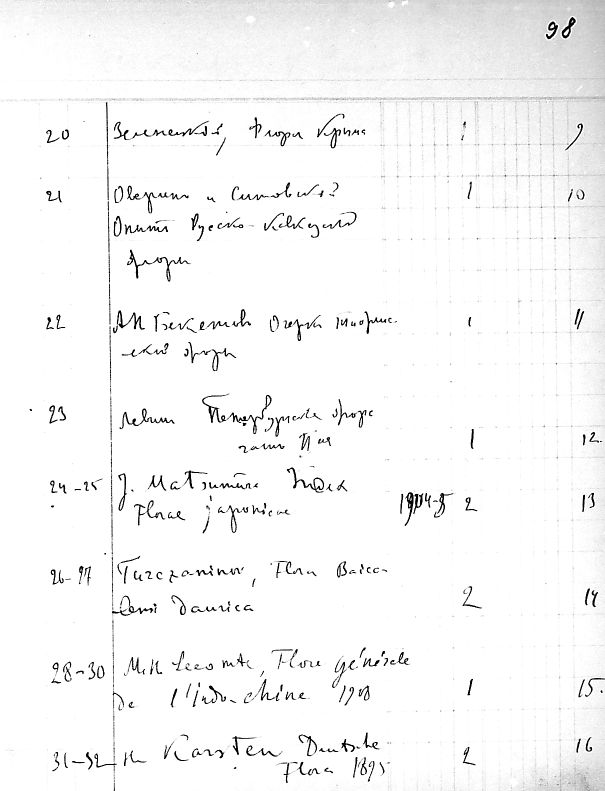 98
20 Зеленецкий, Флора Крыма 1 9
21 Оверин и Ситовский 1 10
Опыт Русско-Кавказской
флоры
22 АН Бекетов Очерк Таврич- 1 11
еской флоры
23 Петербургская флора
часть 1 12.
24-25 J. Matsumura Index
Florae japonicae 1904-5 2 13
26-27 Turczaninov, Flora Baica-
lensi Daurica 2 14
28-30 M.H Lecomte, Flore générale
De l'Indo-chine 1908 1 15.
31-32 H Karsten Deutsche 2 16
Flora 1895